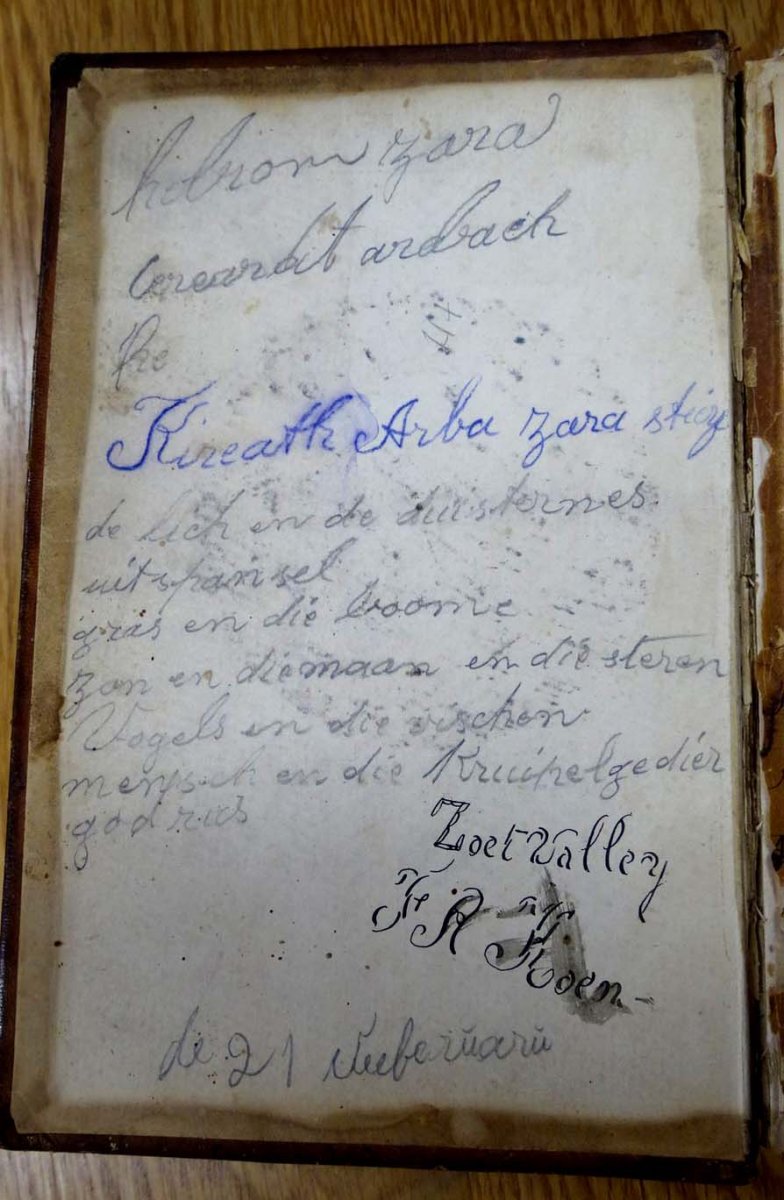 hebron zara
Cereardt arbach
Kireath Arba zara sterf
de lich en de duisternes
uitspansel
gras en die boome
zon en die maan en die steren
Vogels en die vischen
mensch en die Kruipelgedier
god rus
Zoet Valley
F R Koen
de 21